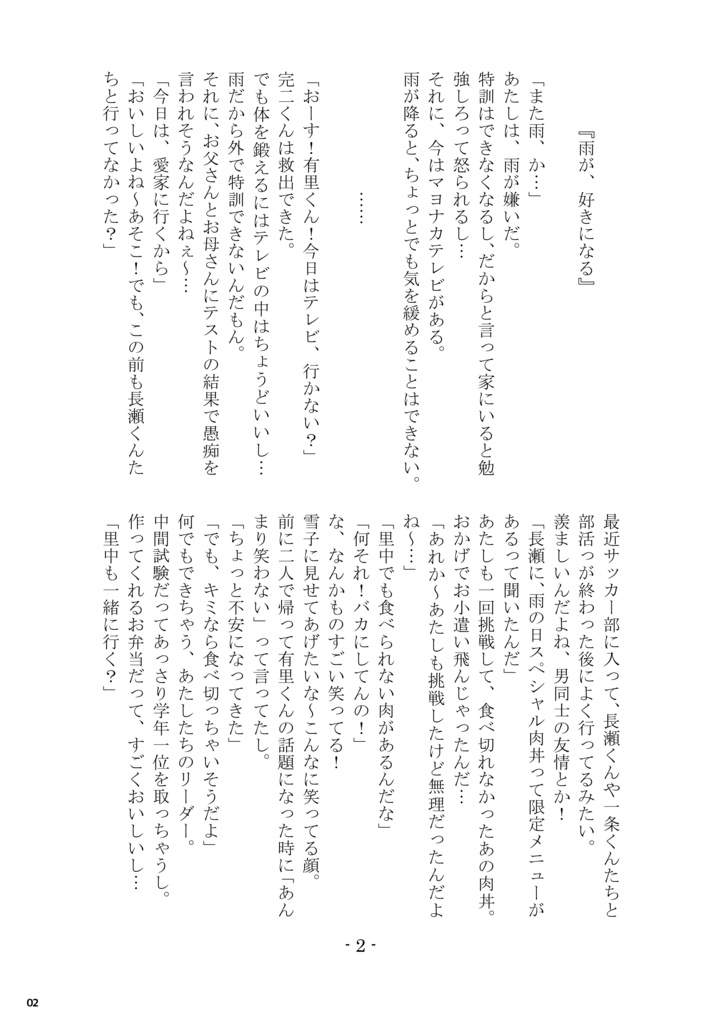 『雨が、好きになる』
「また雨、か…」
あたしは、雨が嫌いだ。
特訓はできなくなるし、だからと言って家にいると勉
強しろって怒られるし…
それに、今はマヨナカテレビがある。
雨が降ると、ちょっとでも気を緩めることはできない。
……
「おーす！有里くん！今日はテレビ、行かない？」
完二くんは救出できた。
でも体を鍛えるにはテレビの中はちょうどいいし…
雨だから外で特訓できないんだもん。
それに、お父さんとお母さんにテストの結果で愚痴を
言われそうなんだよねぇ～…
「今日は、愛家に行くから」
「おいしいよね～あそこ！でも、この前も長瀬くんた
ちと行ってなかった？」
最近サッカー部に入って、長瀬くんや一条くんたちと
部活っが終わった後によく行ってるみたい。
羨ましいんだよね、男同士の友情とか！
「長瀬に、雨の日スペシャル肉丼って限定メニューが
あるって聞いたんだ」
あたしも一回挑戦して、食べ切れなかったあの肉丼。
おかげでお小遣い飛んじゃったんだ…
「あれか～あたしも挑戦したけど無理だったんだよ
ね～…」
「里中でも食べられない肉があるんだな」
「何それ！バカにしてんの！」
な、なんかものすごい笑ってる！
雪子に見せてあげたいな～こんなに笑ってる顔。
前に二人で帰って有里くんの話題になった時に「あん
まり笑わない」って言ってたし。
「ちょっと不安になってきた」
「でも、キミなら食べ切っちゃいそうだよ」
何でもできちゃう、あたしたちのリーダー。
中間試験だってあっさり学年一位を取っちゃうし。
作ってくれるお弁当だって、すごくおいしいし…
「里中も一緒に行く？」
- 2 -
02